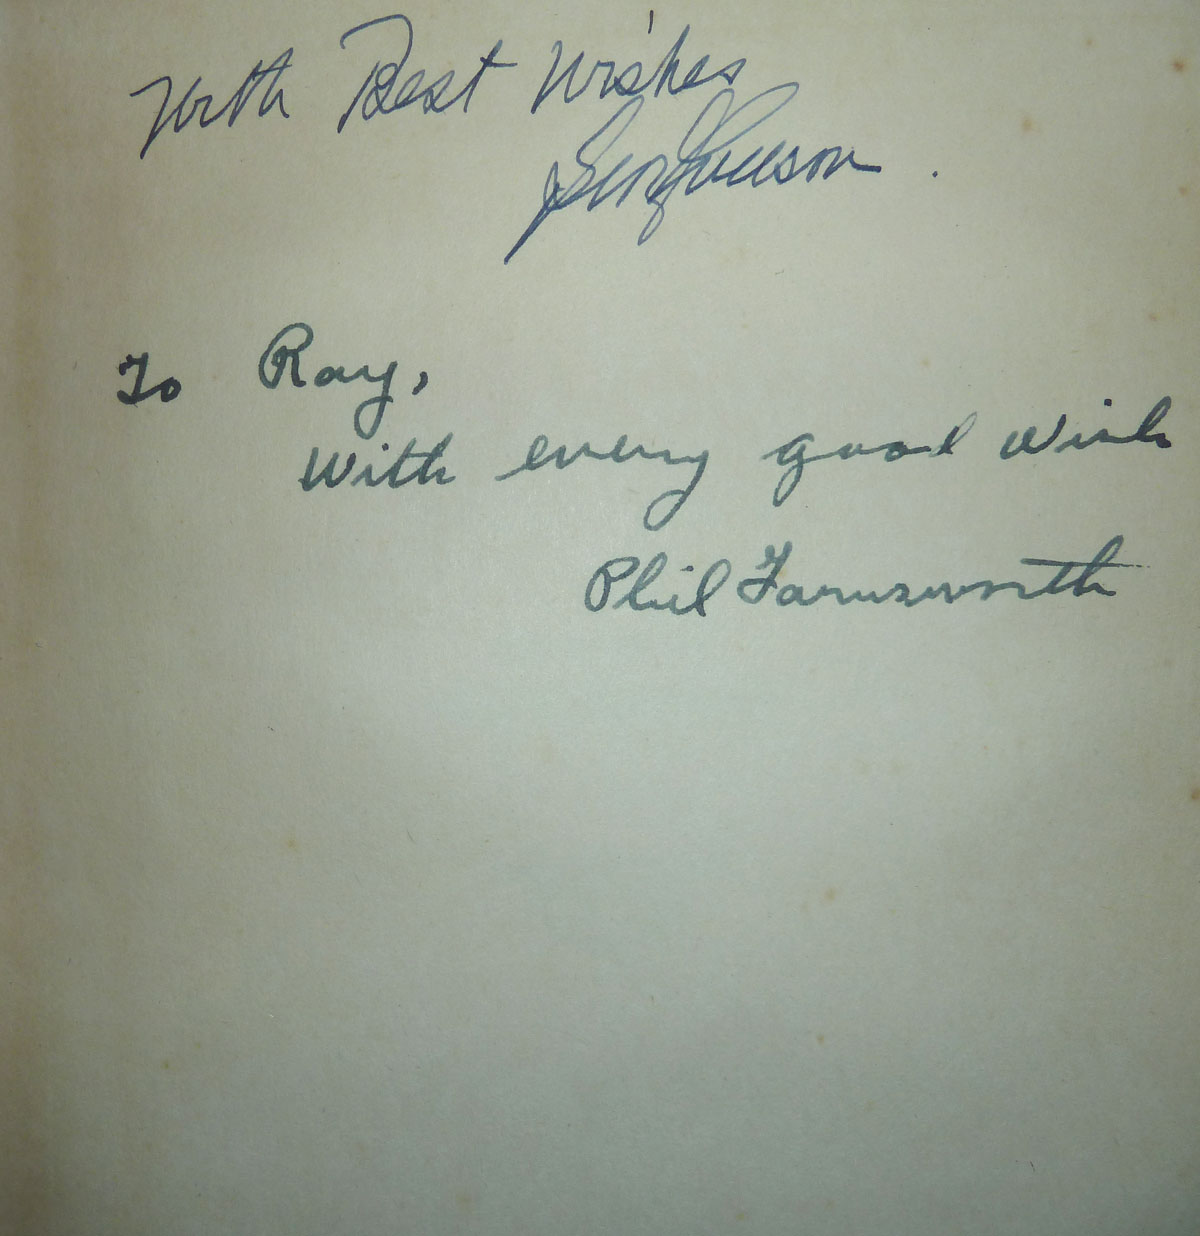 With Best Wishes
George Everson.
To Ray,
With every good wish
Phil Farnsworth